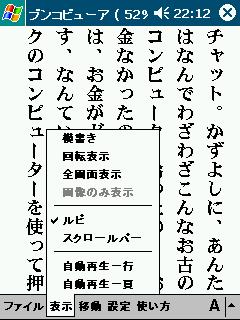 ブンコビューア ( 529 22:12
チャット。かずよしに、あんた
はなんでわざわざこんなお古の
コンピュータ
金なかったの
は、お金が
す、なんてい
クのコンピューターを使って押
横書き
回転表示
全画面表示
画像のみ表示
✓ ルビ
スクロールバー
自動再生一行
自動再生一頁
ファイル 表示 移動 設定 使い方 A